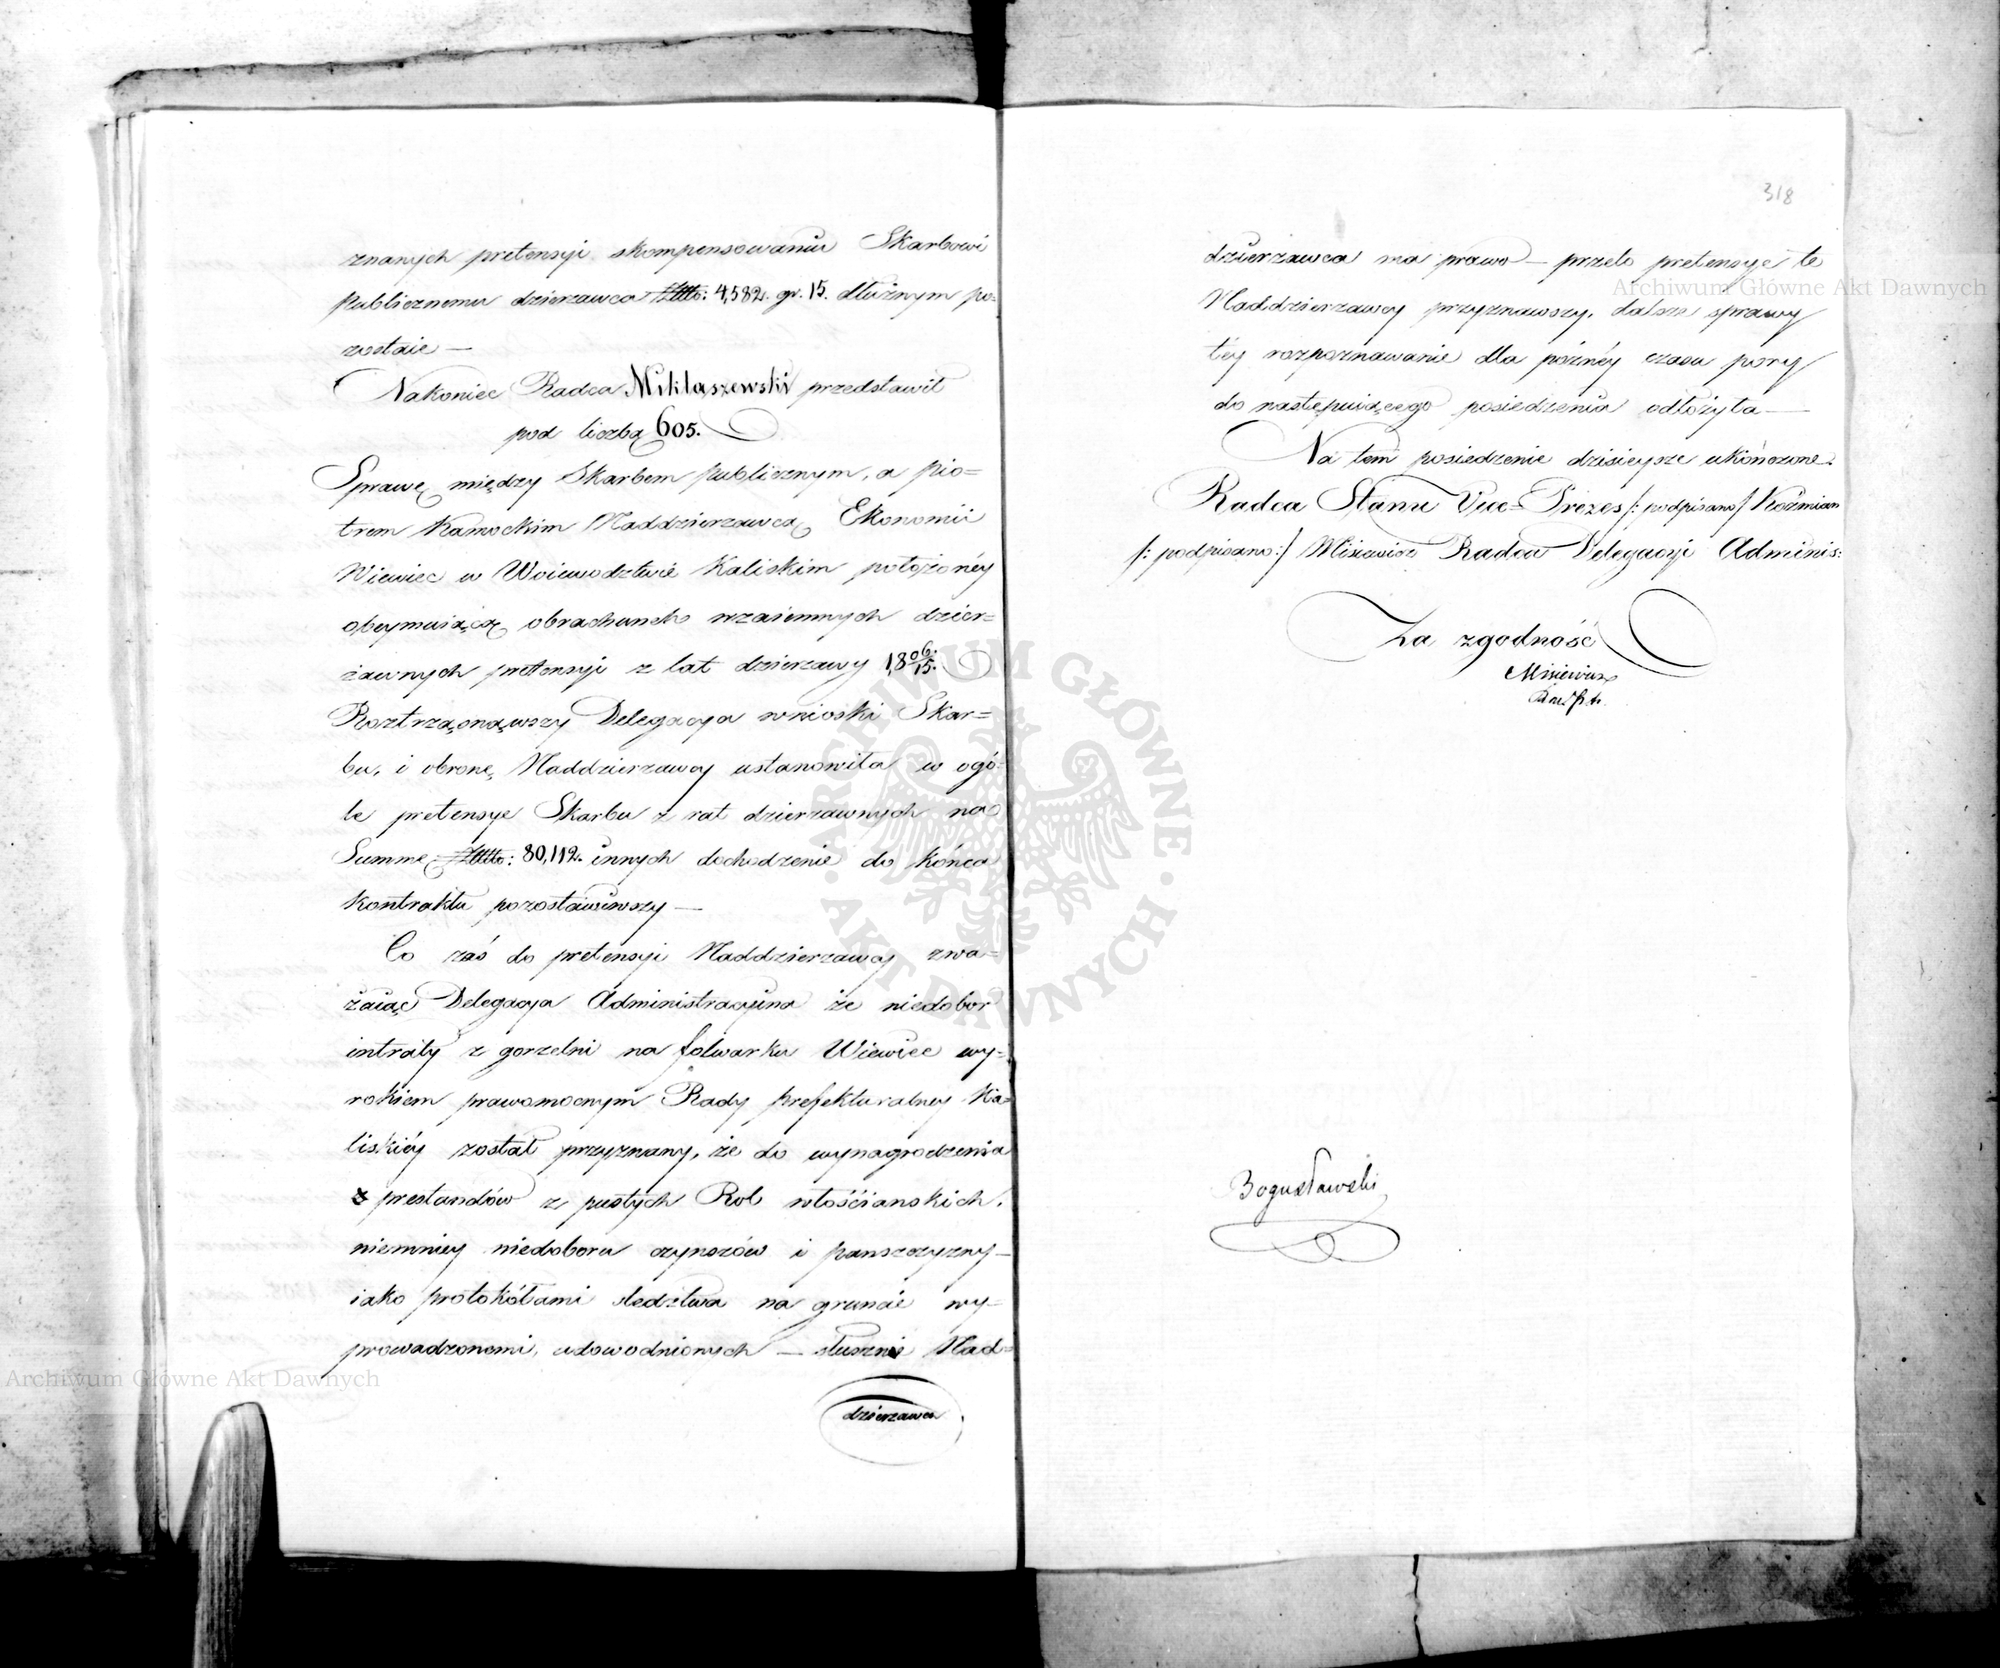 znanych pretensyi skompensowaniu Skarbowi
publicznemu dzierzawca Złłto: 4,582. gr. 15. dłużnym po=
zostaie —
Nakoniec Radca Miklaszewski przedstawił
pod liczbą 605.
Sprawę między Skarbem publicznym, a Pio=
trem Kamockim Naddzierzawcą Ekonomii
Wiewiec w Woiewodztwie Kaliskim położonéy
obeymuiącą obrachunek wzaiemnych dzier=
żawnych pretensyi z lat dzierzawy 1806/15.
Roztrząsnąwszy Delegacya wnioski Skar=
bu, i obronę Naddzierzawcy ustanowiła w ogó=
le pretensye Skarbu z rat dzierzawnych na
Summę Złłto: 80,112. innych dochodzenie do końca
kontraktu pozostawiwszy —
Co zaś do pretensyi Naddzierzawcy zwa=
żaiąc Delegacya Administracyina że niedobor
intraty z gorzelni na folwarku Wiewiec wy=
rokiem prawomocnym Rady prefekturalney Ka=
liskiéy został przyznany, że do wynagrodzenia
prestandów z pustych Rol włościanskich,
niemniey niedoboru czynszów i panszczyzny —
iako protokółami sledztwa na gruncie wy=
prowadzonemi, udowodnionych — słusznie Nad=
dzierzawca
318
dzierzawca ma prawo — przeto pretensye te
Naddzierzawcy przyznawszy, dalsze sprawy
téy rozpoznawanie dla późnéy czasu pory
do następuiącego posiedzenia odłożyła —
Na tem posiedzenie dzisieysze ukończone.
Radca Stanu Vice=Prezes /: podpisano / Koźmian
/: podpisano :/ Misiewicz Radca Delegacyi Adminis:
Za zgodność
Misiewicz
Bogusławski
Archiwum Główne Akt Dawnych
Archiwum Główne Akt Dawnych
ARCHIWUM GŁÓWNE · AKT DAWNYCH ·